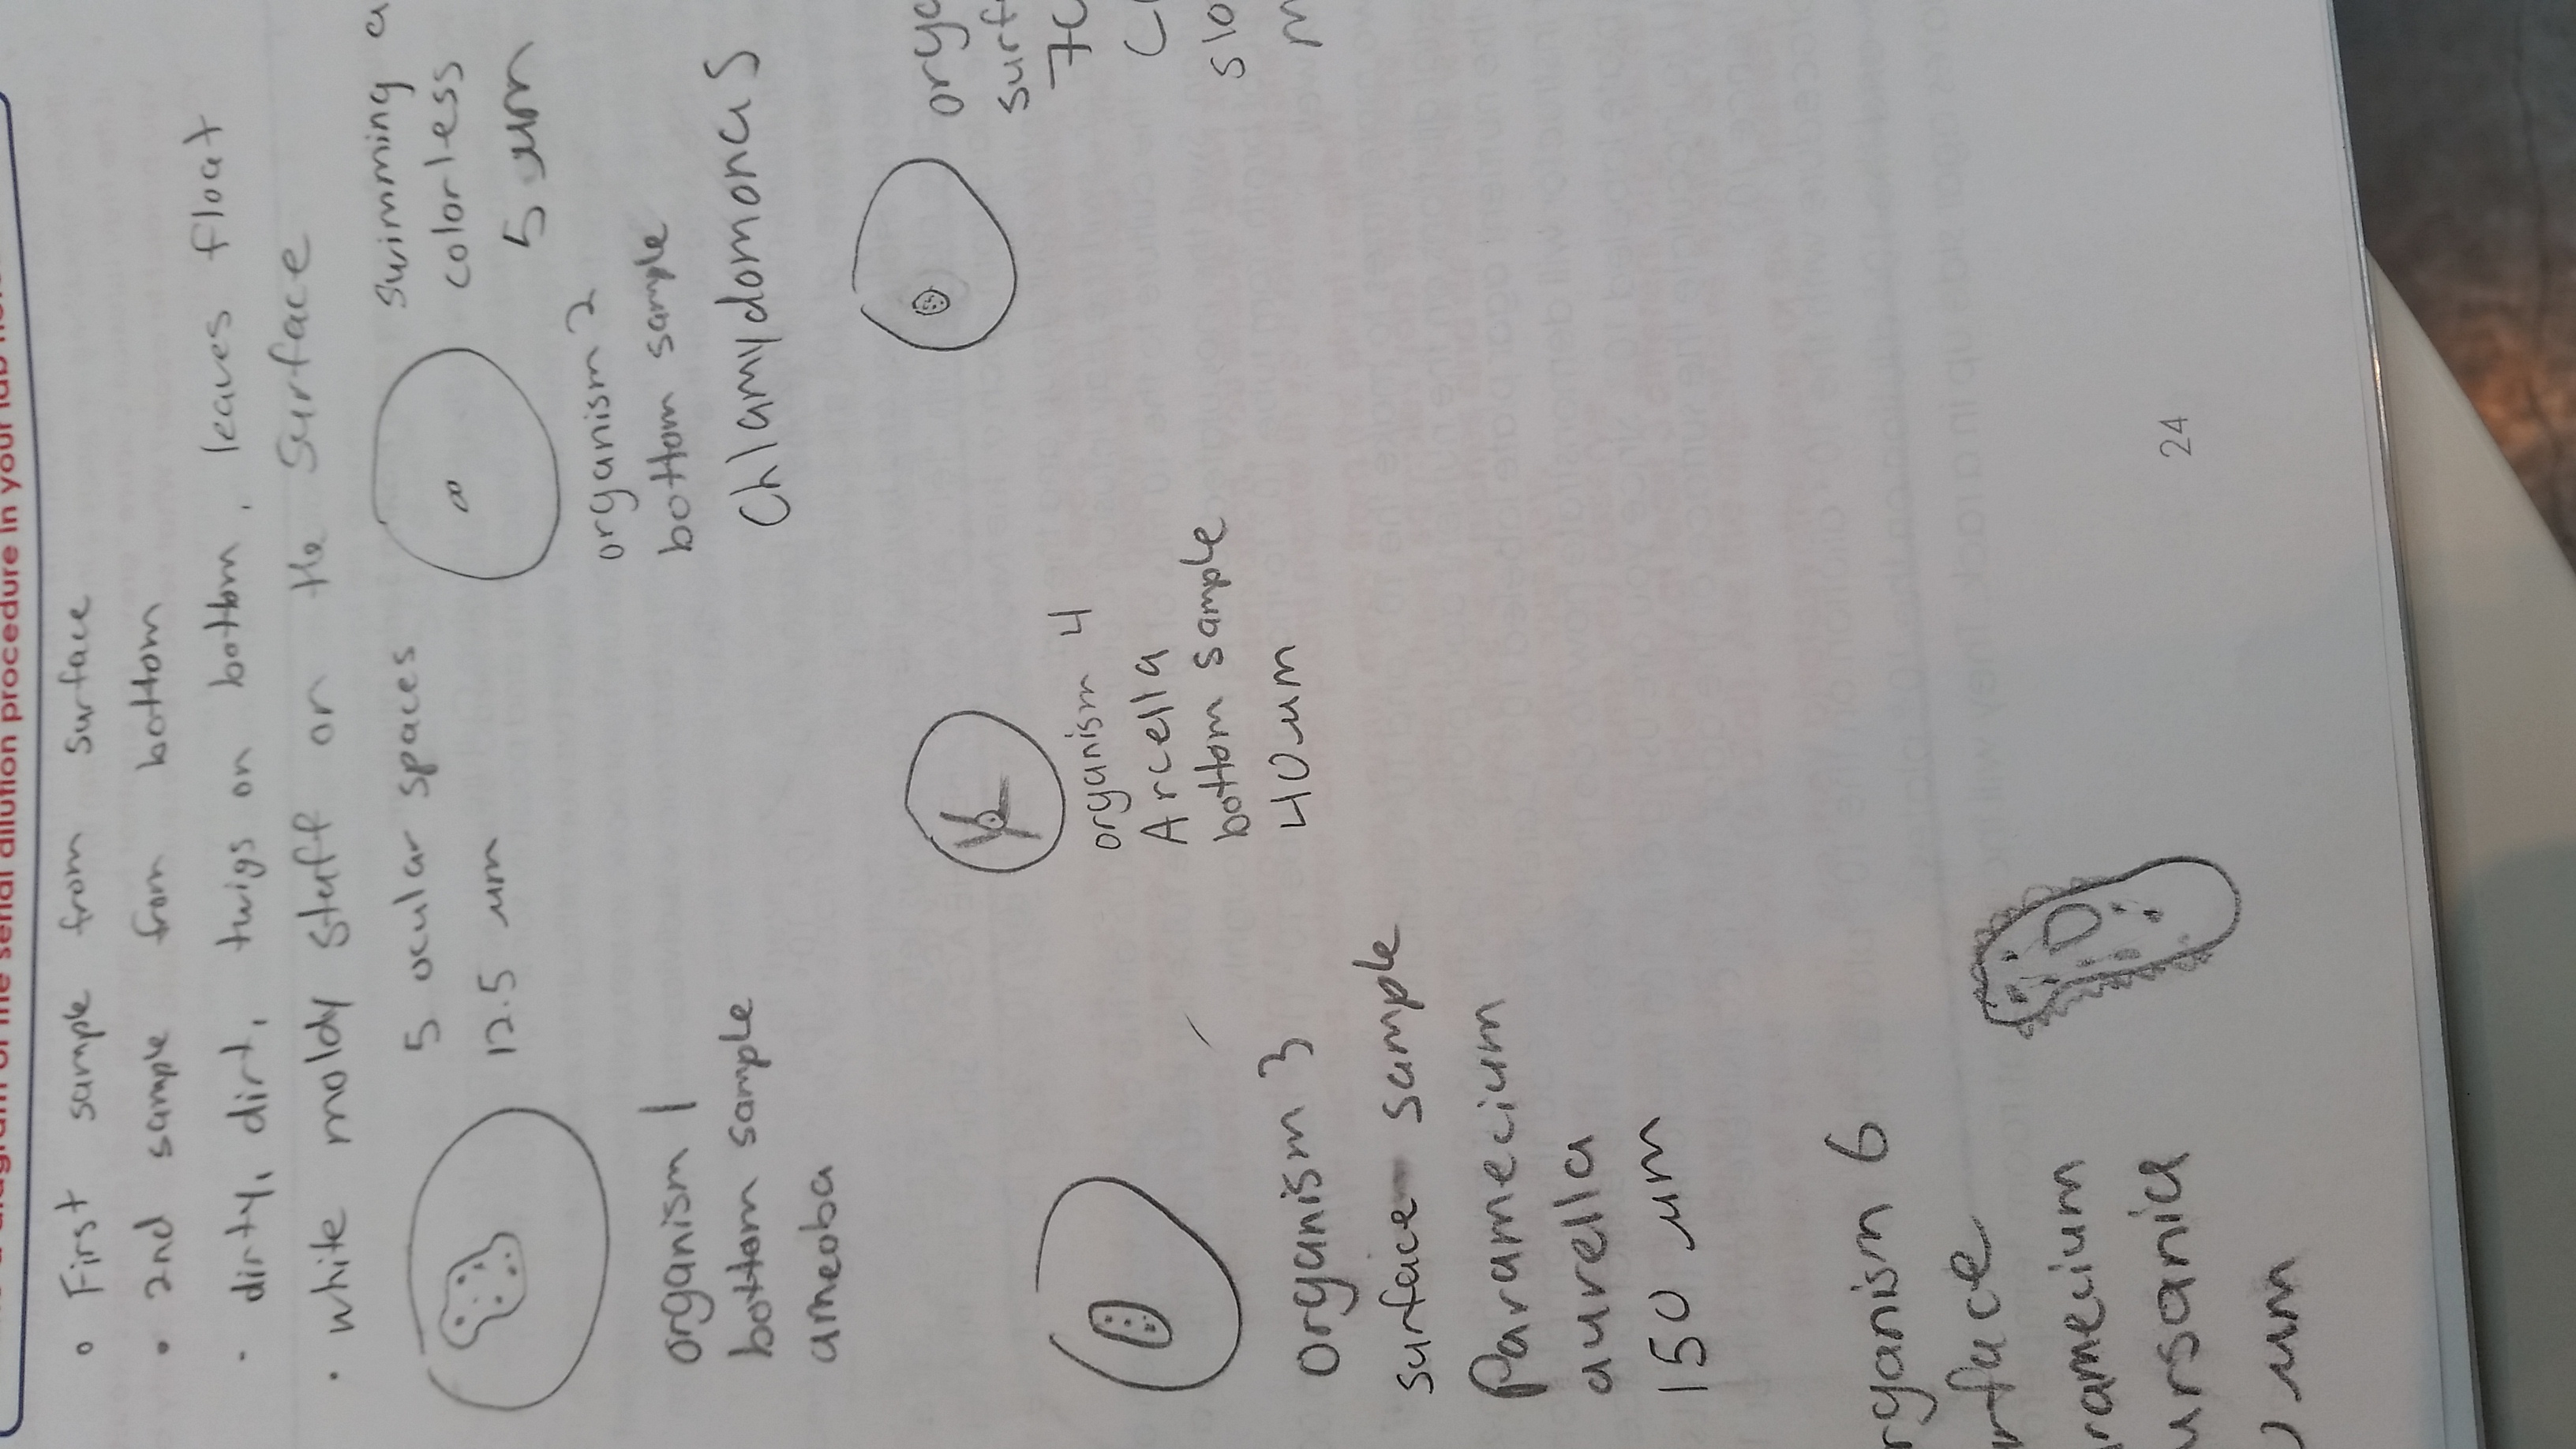 diagram of the serial dilution procedure in your lab
° First sample from surface
• 2nd sample from bottom
• dirty, dirt, twigs on bottom, leaves float
• white moldy stuff on the surface
5 ocular spaces
12.5 um
organism 1
bottom sample
ameoba
swimming a
colorless
5 um
organism 2
bottom sample
Chlamydomonas
organism 3
surface sample
Paramecium
aurella
150 um
organism 4
Arcella
bottom sample
40 um
orga
surf
70
slo
rganism 6
rface
ramecium
ursaria
um
24